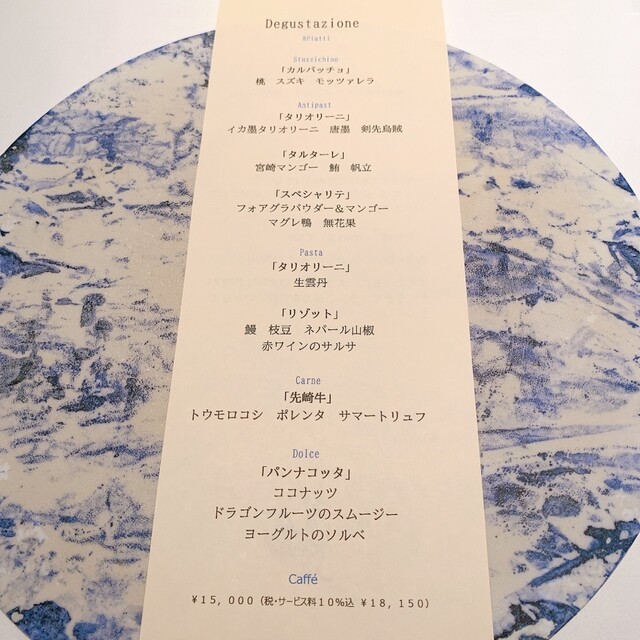 Degustazione
8Piatti
Stuzzichino
「カルパッチョ」
桃 スズキ モッツァレラ
Antipast
「タリオリーニ」
イカ墨タリオリーニ 唐墨 剣先烏賊
「タルターレ」
宮崎マンゴー 鮪 帆立
「スペシャリテ」
フォアグラパウダー＆マンゴー
マグレ鴨 無花果
Pasta
「タリオリーニ」
生雲丹
「リゾット」
鰻 枝豆 ネパール山椒
赤ワインのサルサ
Carne
「先崎牛」
トウモロコシ ポレンタ サマートリュフ
Dolce
「パンナコッタ」
ココナッツ
ドラゴンフルーツのスムージー
ヨーグルトのソルベ
Caffé
￥15,000（税・サービス料10％込 ￥18,150）